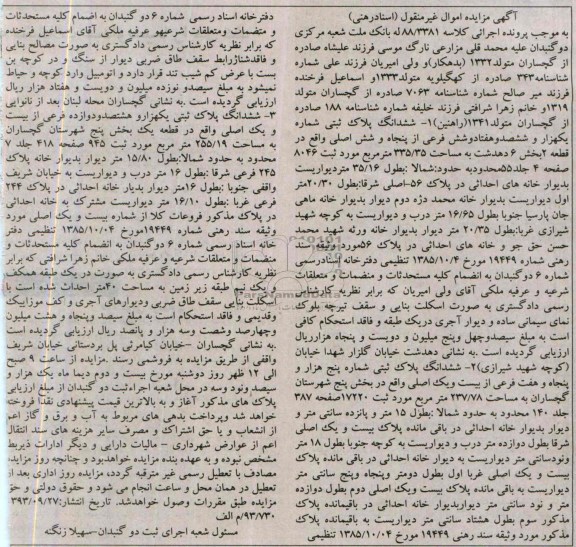 آگهی مزایده اموال غیرمنقول (اسنادرهنی)
به موجب پرونده اجرائی کلاسه ۸۸/۳۳۸۱له بانک ملت شعبه مرکزی
دوگنبدان علیه محمد قلی مزارعی نارگ موسی فرزند علیشاه صادره
از گچساران متولد۱۳۳۲ (بدهکار)و ولی امیریان فرزند علی شماره
شناسنامه۳۴۳ صادره از کهگیلویه متولد۱۳۳۳و اسماعیل فرخنده
فرزند میر صالح شماره شناسنامه ۷۰۶۳ صادره از گچساران متولد
۱۳۱۹و خانم زهرا شرافتی فرزند خلیفه شماره شناسنامه ۱۸۸ صادره
از گچساران متولد۱۳۴۱(راهنین)۱- ششدانگ پلاک ثبتی شماره
یکهزار و ششصدوهفتادوشش فرعی از پنجاه و شش اصلی واقع در
قطعه ۲بخش ۶ دهدشت به مساحت ۳۳۵/۳۵ مترمربع مورد ثبت ۸۰۴۶
صفحه ۴ جلد۵۵محدودبه حدود:شمالا :بطول ۳۵/۱۶ متردیواریست
بدیوار خانه های احداثی در پلاک ۵۶-اصلی شرقا:بطول ۲۰/۳۰متر
اول دیواریست بدیوار خانه محمد دژه دوم دیوار بدیوار خانه ماهی
جان پارسیا جنوبا بطول ۱۶/۶۵ متر درب و دیواریست به کوچه شهید
شیرازی غربا:بطول ۲۰/۳۵ متر دیوار بدیوار خانه ورثه شهید محمد
حسن حق جو و خانه های احداثی در پلاک ۵۶موردوثیقه سند
رهنی شماره ۱۹۴۴۹ مورخ ۱۳۸۵/۱۰/۴ تنظیمی دفترخانه اسنادرسمی
شماره ۶ دوگنبدان به انضمام کلیه مستحدثات و منضمات و متعلقات
شرعیه و عرفیه ملکی آقای ولی امیریان که برابر نظریه کارشناس
رسمی دادگستری به صورت اسکلت بنایی و سقف تیرچه بلوک
نمای سیمانی ساده و دیوار آجری دریک طبقه و فاقد استحکام کافی
است به مبلغ سیصدوچهل وپنج میلیون و دویست و پنجاه هزارریال
ارزیابی گردیده است .به نشانی دهدشت خیابان گلزار شهدا خیابان
(کوچه شهید شیرازی)۲- ششدانگ پلاک ثبتی شماره پنج هزار و
پنجاه و هفت فرعی از بیست ویک اصلی واقع در بخش پنج شهرستان
گچساران به مساحت ۲۳۷/۷۸ متر مربع مورد ثبت ۱۷۲۲۰صفحه ۳۸۷
جلد ۱۴۰ محدود به حدود شمالا :بطول ۱۵ متر و پانزده سانتی متر و
دیوار بدیوار خانه احداثی در باقی مانده پلاک بیست و یک اصلی
شرقا بطول دوازده متر درب و دیواریست به کوچه جنوبا بطول ۱۸ متر
ونودسانتی متر دیواریست به دیوار خانه احداثی در باقی مانده پلاک
بیست و یک اصلی غربا اول بطول دومتر وپنجاه وپنج سانتی متر
دیواریست به باقی مانده پلاک بیست ویک اصلی دوم بطول دوازده
متر و نود سانتی متر دیواربدیوار خانه احداثی در باقیمانده پلاک
مذکور سوم بطول هشتاد سانتی متر دیواریست به باقیمانده پلاک
مذکور مورد وثیقه سند رهنی ۱۹۴۴۹ مورخ ۱۳۸۵/۱۰/۰۴ تنظیمی
دفترخانه اسناد رسمی شماره ۶ دو گنبدان به انضمام کلیه مستحدثات
و منضمات ومتعلقات شرعیهو عرفیه ملکی آقای اسماعیل فرخنده
که برابر نظریه کارشناس رسمی دادگستری به صورت مصالح بنایی
و فاقدشناژرابط سقف طاق ضربی دیوار از سنگ و در کوچه بن
بست با عرض کم شیب تند قرار دارد و اتومبیل وارد کوچه و حیاط
نمیشود به مبلغ سیصدو نوزده میلیون و دویست و هفتاد هزار ریال
ارزیابی گردیده است .به نشانی گچساران محله لبنان بعد از نانوایی
۳- ششدانگ پلاک ثبتی یکهزارو هشتصدودوازده فرعی از بیست
و یک اصلی واقع در قطعه یک بخش پنج شهرستان گچساران
به مساحت ۲۵۵/۱۹ متر مربع مورد ثبت ۹۴۵ صفحه ۴۱۸ جلد ۷
محدود به حدود شمالا:بطول ۱۵/۸۰ متر دیوار بدیوار خانه پلاک
۲۴۵ فرعی شرقا :بطول ۱۶ متر درب و دیواریست به خیابان شریف
واقفی جنوبا :بطول ۱۶متر دیوار بدیار خانه احداثی در پلاک ۲۴۴
فرعی غربا :بطول ۱۶/۱۰ متر دیواریست مشترک به خانه احداثی
در پلاک مذکور فروعات کلا از شماره بیست و یک اصلی مورد
وثیقه سند رهنی شماره ۱۹۴۴۹مورخ ۱۳۸۵/۱۰/۰۴ تنظیمی دفتر
خانه اسناد رسمی شماره ۶ دوگنبدان به انضمام کلیه مستحدثات و
منضمات و متعلقات شرعیه و عرفیه ملکی خانم زهرا شرافتی که برابر
نظریه کارشناس رسمی دادگستری به صورت در یک طبقه همکف
و یک نیم طبقه زیر زمین به مساحت ۴۰متر احداث شده است با
اسکلت بنایی سقف طاق ضربی ودیوارهای آجری و کف موزاییک
وقدیمی و فاقد استحکام است به مبلغ سیصد وپنجاه و هشت میلیون
وچهارصد وشصت وسه هزار و پانصد ریال ارزیابی گردیده است
.به نشانی گچساران -خیابان کیامرثی پل بردستانی خیابان شریف
واقفی از طریق مزایده به فروشمی رسند .مزایده از ساعت ۹ صبح
الی ۱۲ ظهر روز دوشنبه مورخ بیست و دوم دیما ماه یک هزار و
سیصد ونود وسه در محل شعبه اجراءثبت دو گنبدان از مبلغ ارزیابی
پلاک های مذکور آغاز و به بالاترین قیمت پیشنهادی نقدا فروخته
خواهد شد وپرداخت بدهی های مربوط به آب و برق و گاز اعم
از انشعاب و یا حق اشتراک و مصرف سایر هزینه های سند انتقال
اعم از عوارض شهرداری - مالیات دارایی و دیگر ادارات ذیربط
مشخص نبوده و به عهده بنده مزایده خواهدبود و چنانچه روز مزایده
مصادف با تعطیل رسمی غیر مترقبه گردد، مزایده روز اداری بعد از
تعطیل در همان محل و ساعت انجام می شود و حقوق دولتی و حق
مزایده طبق مقررات وصول خواهدشد. تاریخ انتشار:۱۳۹۳/۰۹/۲۷
۹۳/۷۳۰/م الف
مسئول شعبه اجرای ثبت دو گنبدان-سهیلا زنگنه